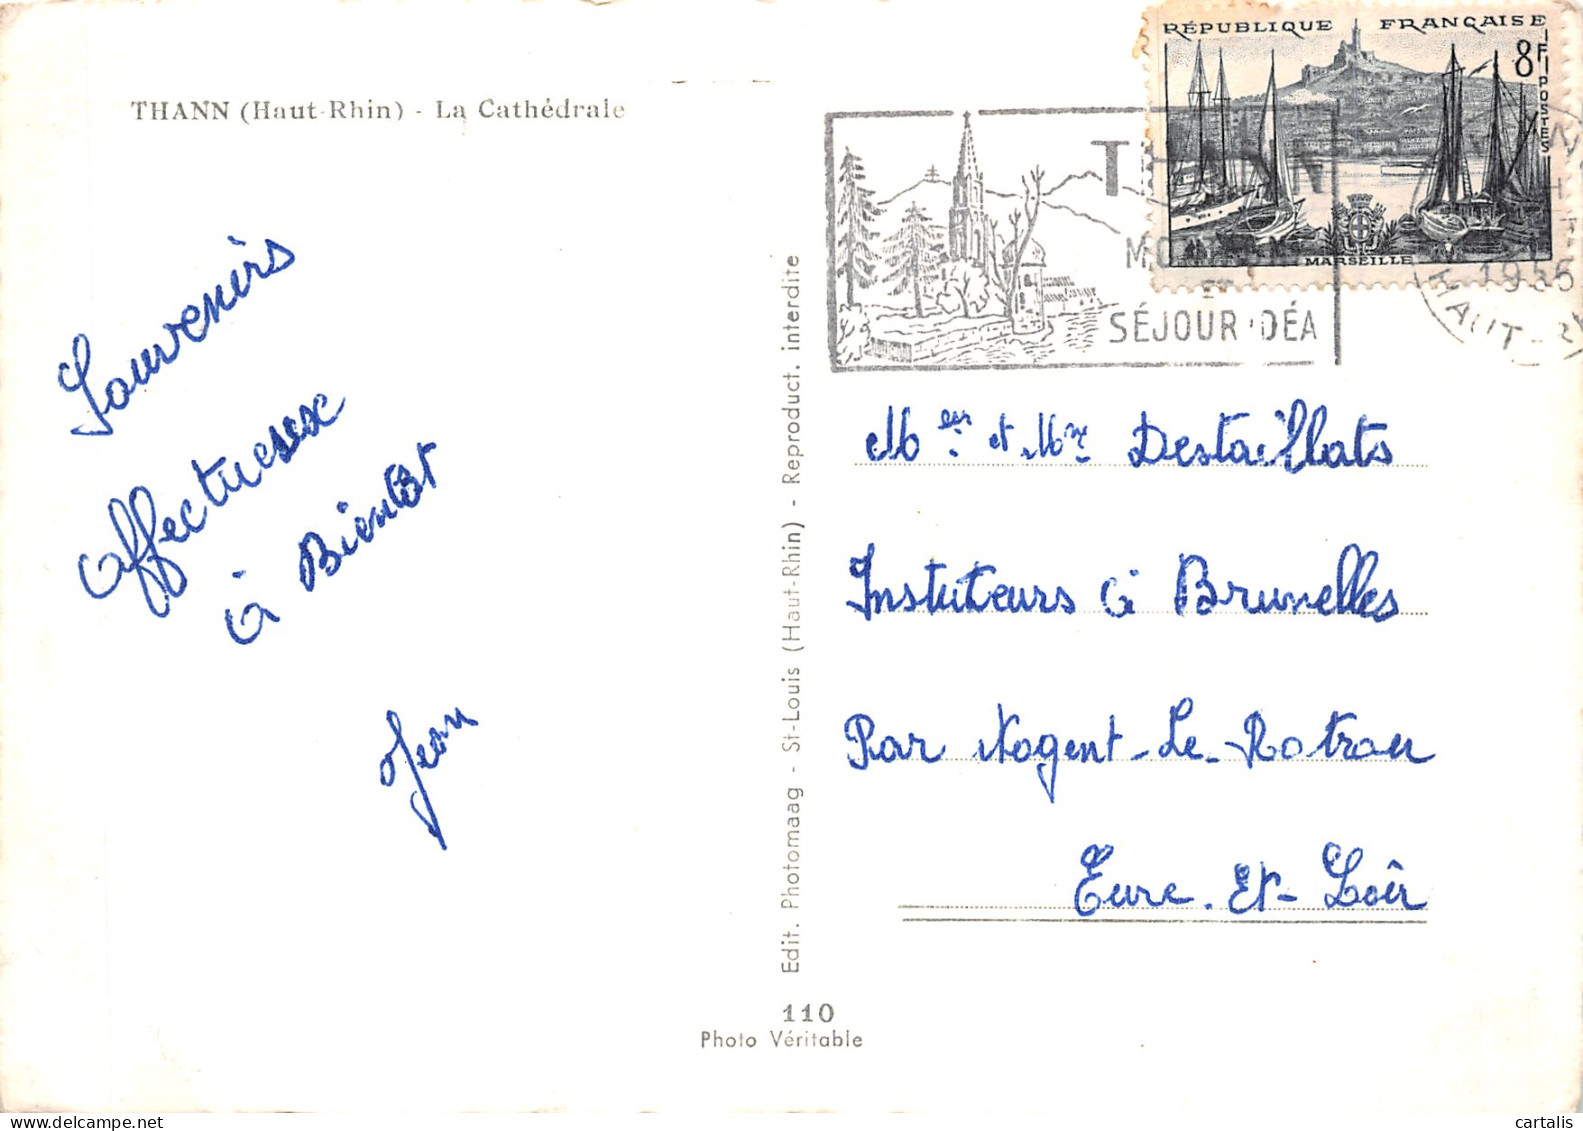 THANN (Haut-Rhin) - La Cathédrale
RÉPUBLIQUE FRANÇAISE
8F
POSTES
MARSEILLE
THANN
ET
SÉJOUR IDÉA
1956
HAUT-R
Souvenirs
affectueux
à Bientôt
Jean
Edit. Photomaag - St-Louis (Haut-Rhin) - Reproduct. interdite
Mer et Mme Destaillats
Instituteurs à Brunelles
Par Nogent-Le-Rotrou
Eure-Et-Loir
110
Photo Véritable
cartalis